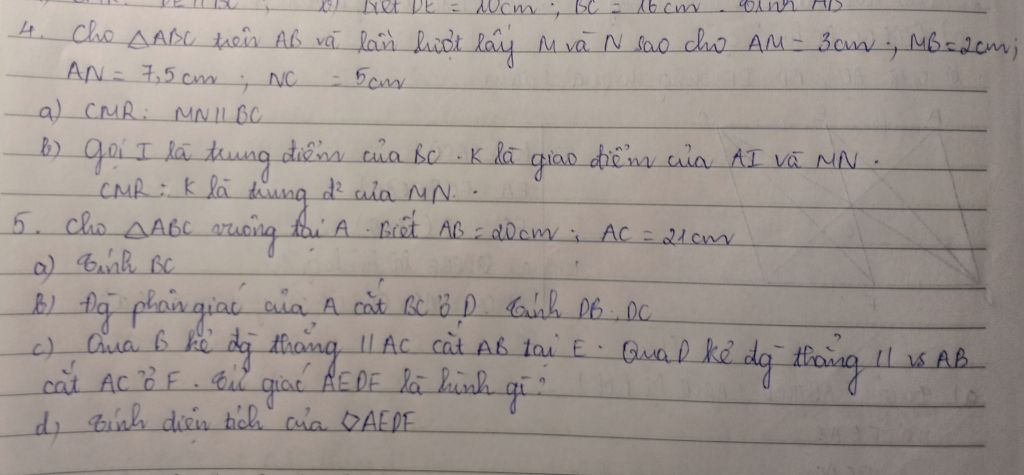 c) Biết DE = 10cm ; BC = 16cm. Tính AB
4. Cho △ABC trên AB và lần lượt lấy M và N sao cho AM = 3cm ; MB = 2cm ;
AN = 7,5cm ; NC = 5cm
a) CMR: MN // BC
b) Gọi I là trung điểm của BC. K là giao điểm của AI và MN.
CMR: K là trung đ² của MN.
5. Cho △ABC vuông tại A. Biết AB = 20cm ; AC = 21cm
a) Tính BC
b) Đg phân giác của A cắt BC ở D Tính DB, DC
c) Qua B kẻ đg thẳng // AC cắt AB tại E. Qua D kẻ đg thẳng // vs AB
cắt AC ở F. Tứ giác AEDF là hình gì?
d, Tính diện tích của ◇AEDF